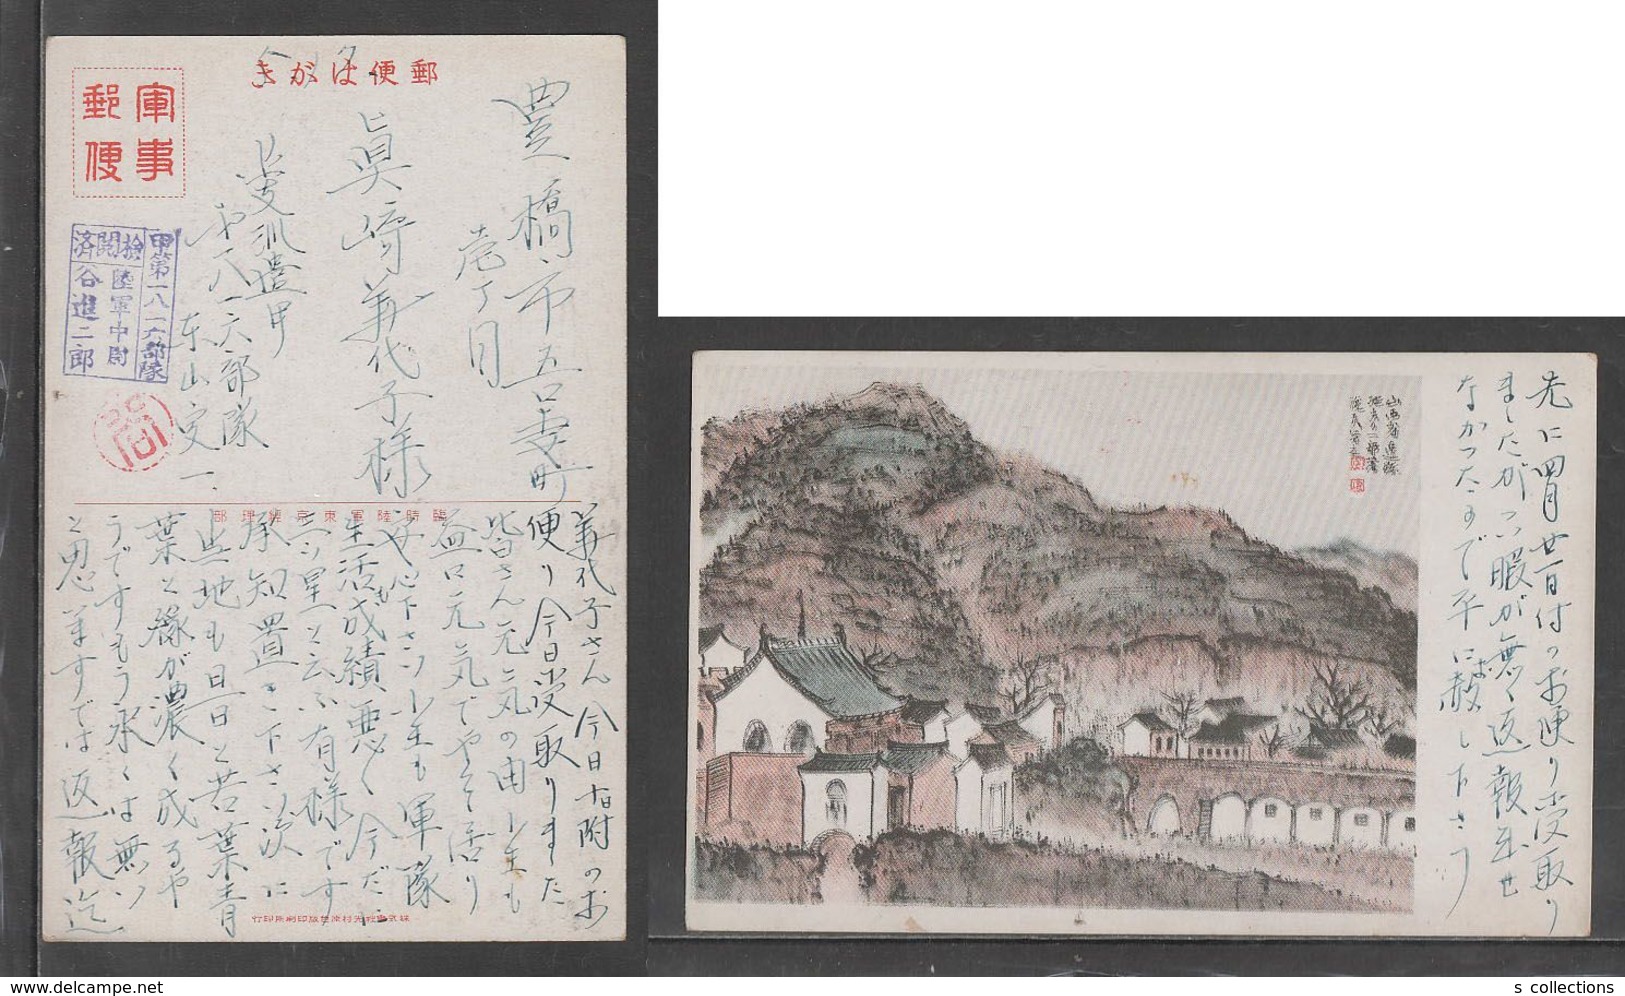 郵便はがき
軍事郵便
豊橋市吾妻町
壱丁目
眞崎義代子様
甲
第一八一六部隊
東山定一
甲第一八一六部隊
検閲済
陸軍中尉
谷進二郎
臨時陸軍東京經理部
義代子さん今日十日附のお
便り今日受取りました
皆さん元気の由小生も
益々元気でやって居り
安心下さい小生も軍隊
生活も成績悪く今だに
三ツ星一と云ふ有様です
承知置き下さい次に
此地も日一日と若葉青
葉と緑が濃く成るや
うですもう永くは無い
と思ひますでは返報迄
先に四月廿一日付のお便り受取り
ましたがつい暇が無く返報出せ
なかったので平に赦し下さい
s collections